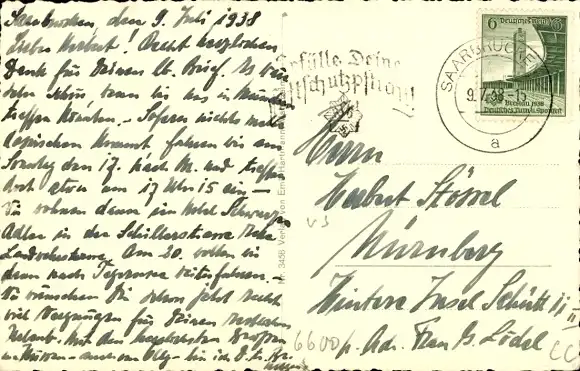 Saarbrücken, den 9. Juli 1938
Lieber Herbert! Recht herzlichen
Dank für Deinen lb. Brief. Es
schön, wenn wir uns in München
treffen könnten. Sofern nichts
kommt fahren wir am
Sonntag den 17. nach M. und treffen
dort etwa um 17 Uhr 15 ein —
Wir wohnen dann im Hotel Schwarzer
Adler in der Schillerstrasse
Am 20. wollen wir
dann nach Tegernsee weiterfahren. —
Wir wünschen Dir schon jetzt recht
viel Vergnügen für Deinen
Urlaub. Mit den herzlichsten Grüssen
bin ich
Nr. 3456 Verlag von
Erfülle Deine
Luftschutzpflicht!
SAARBRÜCKEN
9.7.38.-15
a
6 Deutsches Reich
Breslau 1938
Deutsches Turn- u. Sportfest
Herrn
Herbert Stössel
Nürnberg
Hintere Insel Schütt 11
II
6600 p. Ad. Frau